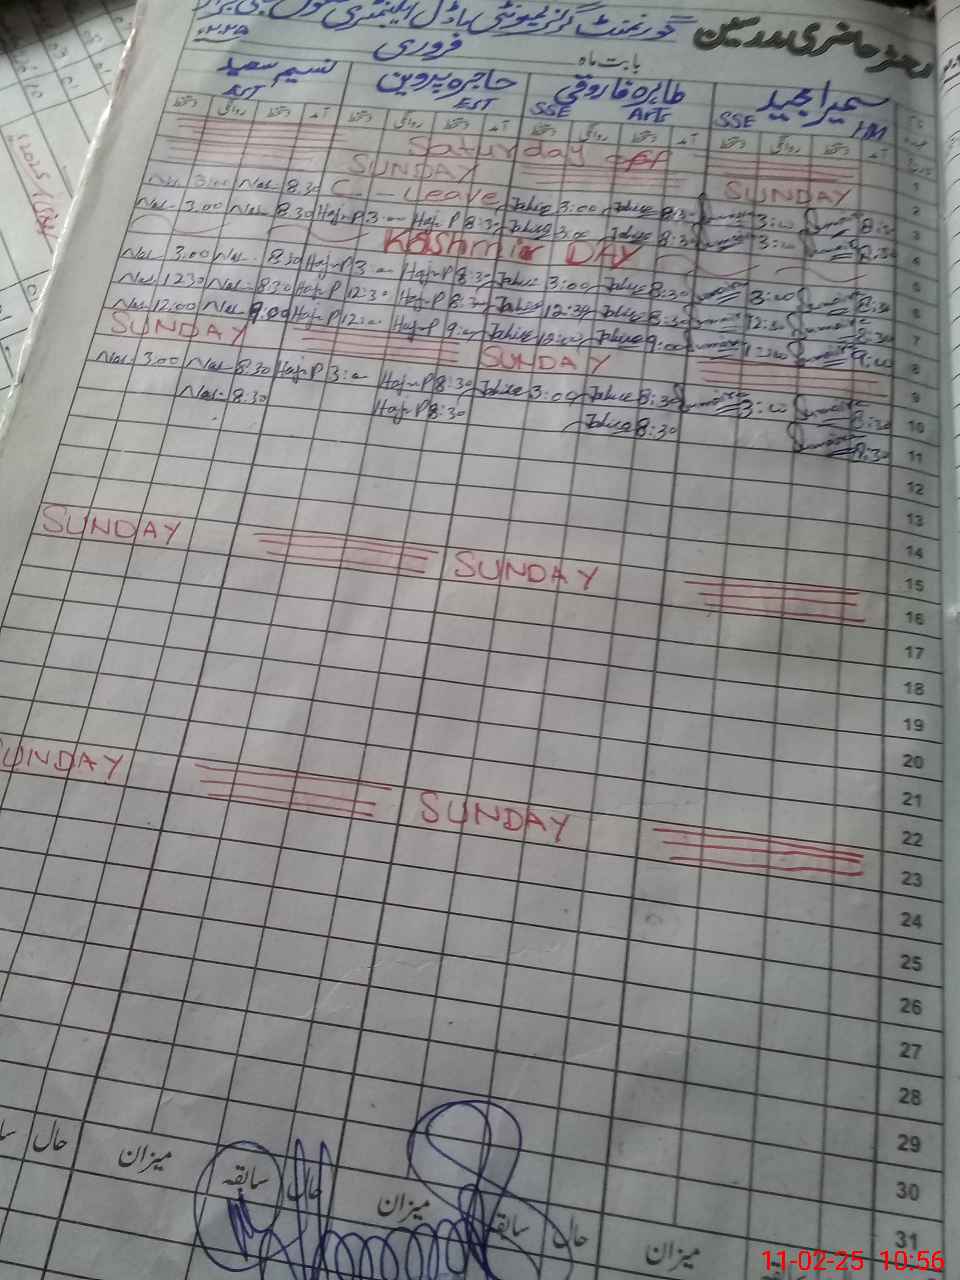 گورنمنٹ گرلز کمیونٹی ماڈل ایلیمنٹری سکول
حاضری مدرسین
بابت ماہ فروری ۲۰۲۵
سمیرا مجید طاہرہ فاروقی حاجرہ پروین نسیم سعید
SSE HM SSE Arts EST EST
آمد دستخط روانگی دستخط آمد دستخط روانگی دستخط آمد دستخط روانگی دستخط آمد دستخط روانگی دستخط
Saturday off
1
SUNDAY SUNDAY
2
Nas- 3:00 Nas- 8:30 C - Leave Tahira 3:00 Tahira 8:30 3:00 8:30
3
Nas- 3.00 Nas- 8.30 Haj-P 3:00 Haj-P 8:30 Tahira 3:00 Tahira 8:30 3:00 8:30
4
Kashmir DAY
5
Nas- 3.00 Nas- 8:30 Haj-P 3:00 Haj-P 8:30 Tahira 3:00 Tahira 8:30 3:00 8:30
6
Nas- 12 30 Nas- 8:30 Haj-P 12:30 Haj-P 8:30 Tahira 12:30 Tahira 8:30 12:30 8:30
7
Nas- 12:00 Nas- 9.00 Haj-P 12:00 Haj-P 9:00 Tahira 12:00 Tahira 9:00 12:00 9:00
8
SUNDAY SUNDAY
9
Nas- 3.00 Nas- 8:30 Haj-P 3:00 Haj-P 8:30 Tahira 3:00 Tahira 8:30 3:00 8:30
10
Nas- 8:30 Haj-P 8:30 Tahira 8:30 8:30
11
12
13
14
15
SUNDAY SUNDAY
16
17
18
19
20
21
22
SUNDAY SUNDAY
23
24
25
26
27
28
29
30
31
میزان حال سابقہ میزان حال سابقہ میزان حال
11-02-25 10:56